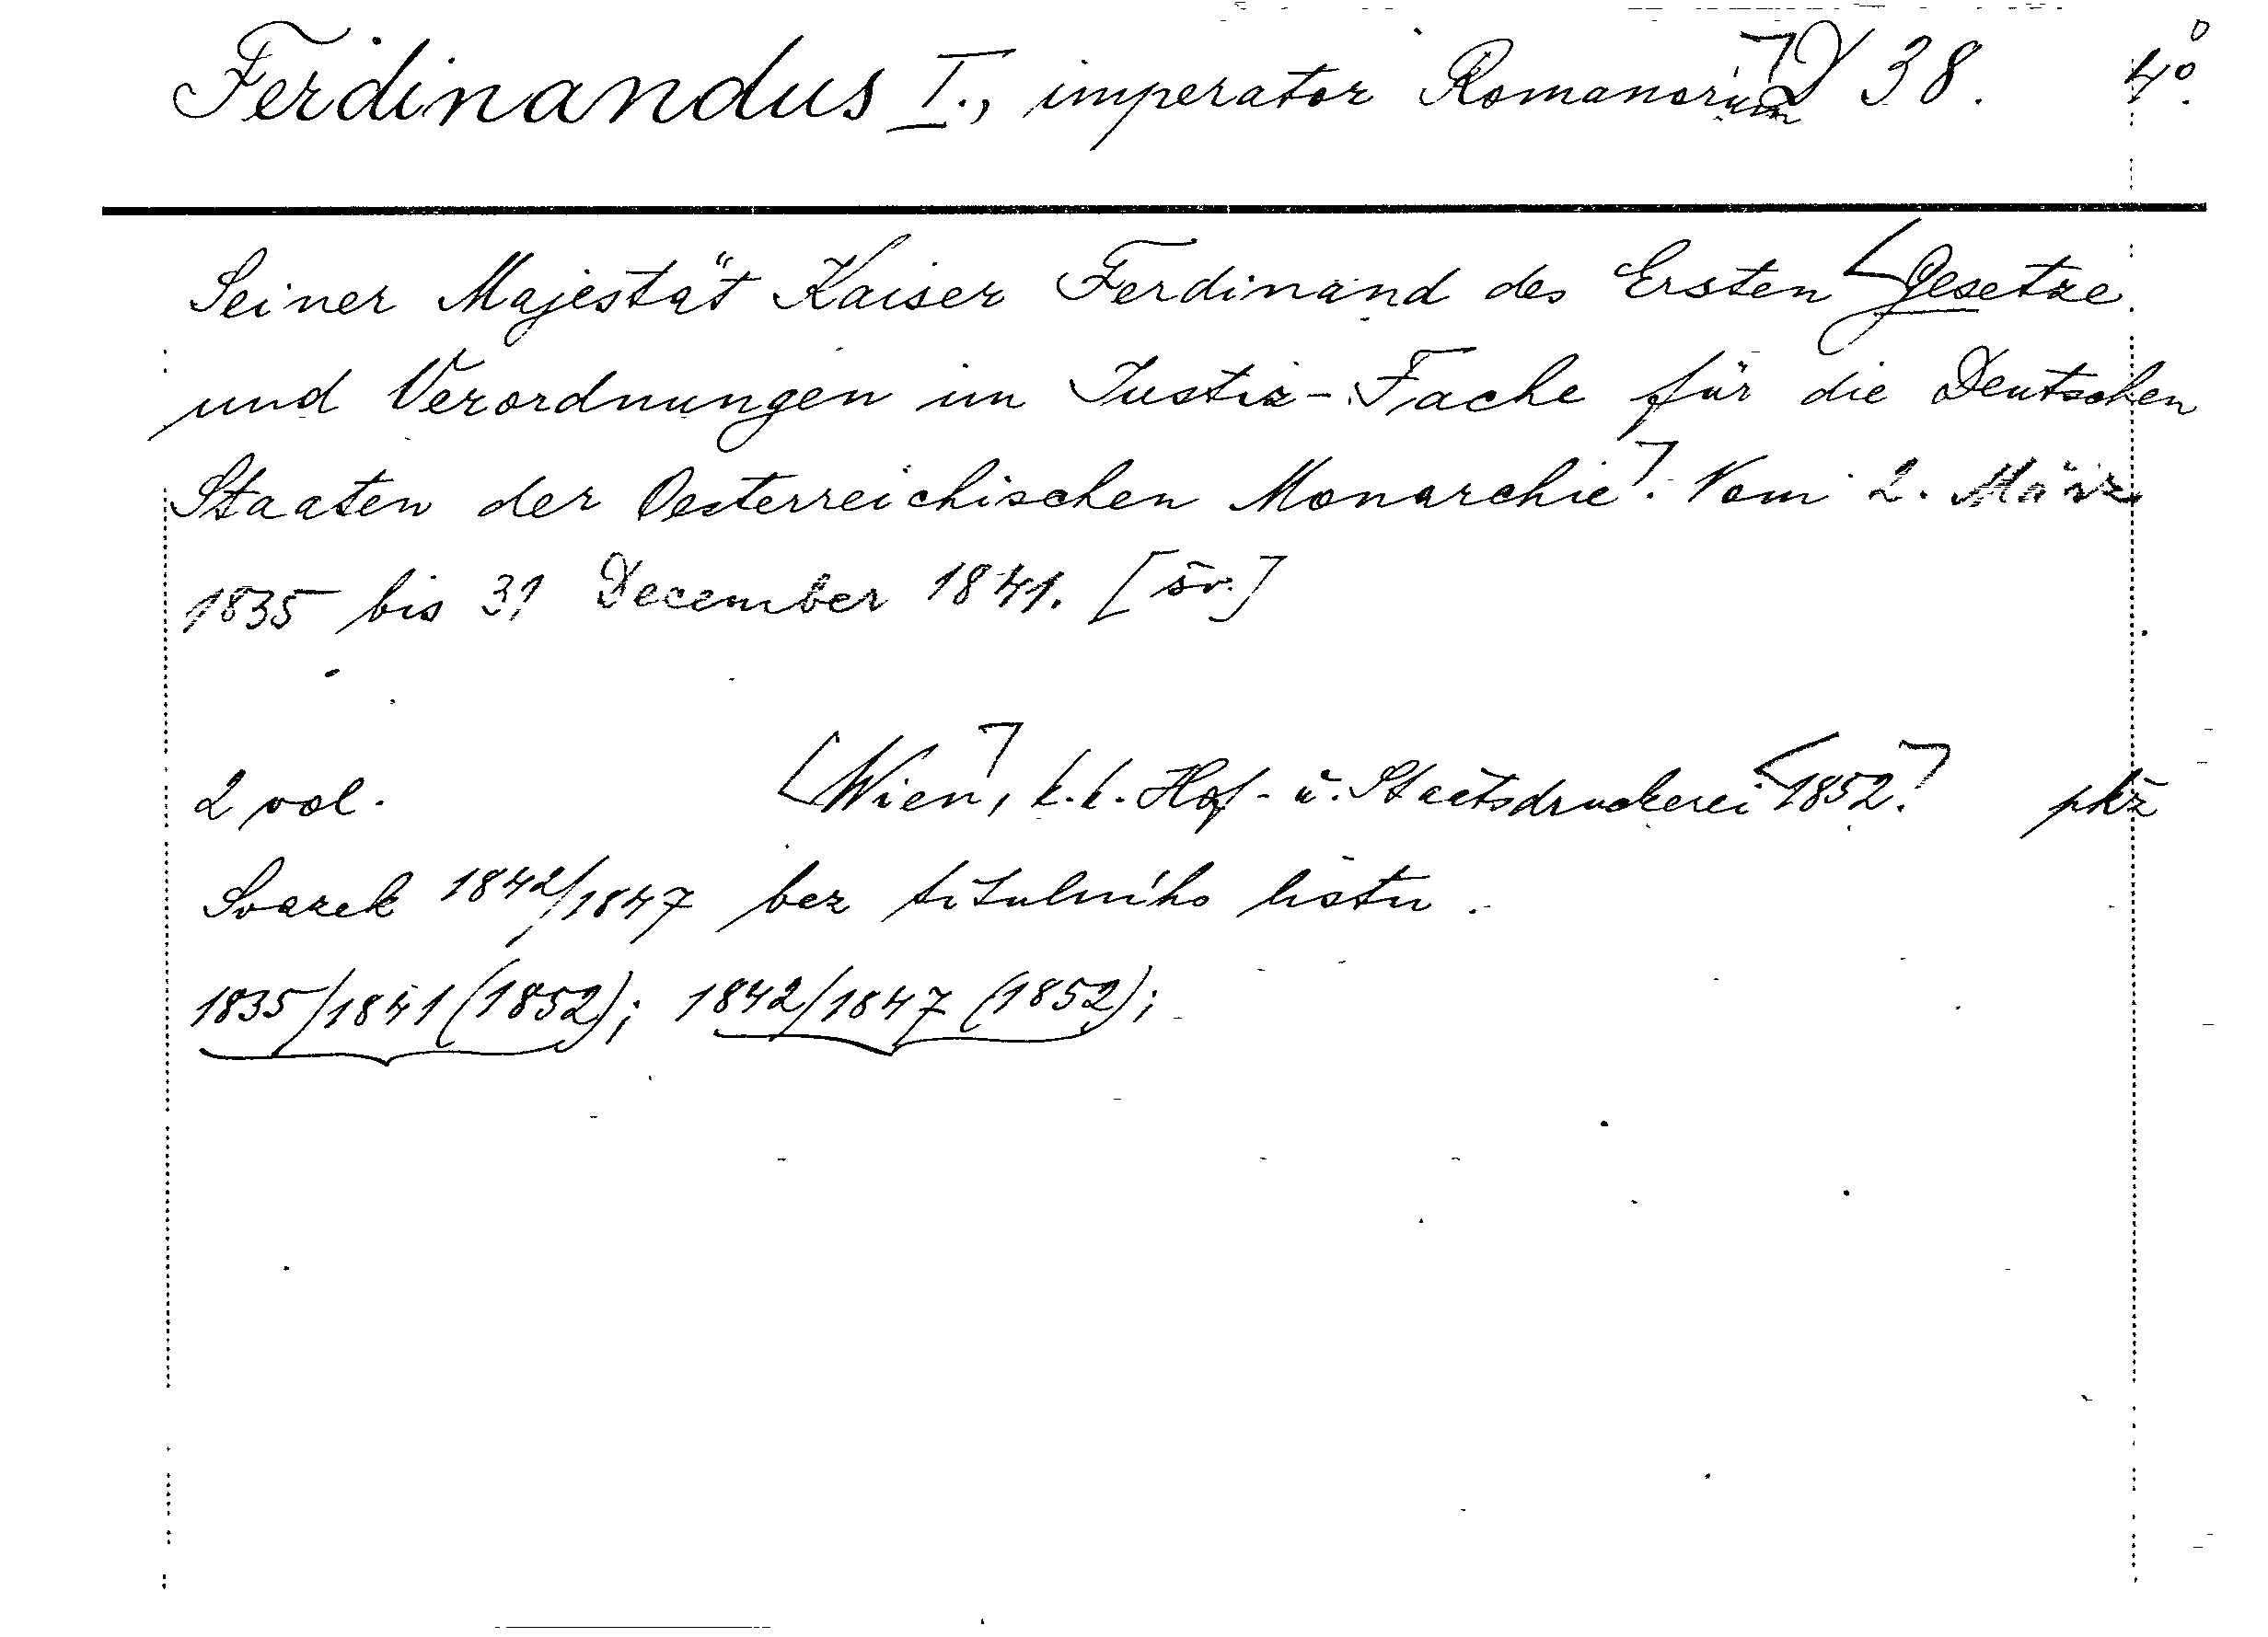 Ferdinandus I., imperator Romanorum Y 38. 4°
Seiner Majestät Kaiser Ferdinand des Ersten Gesetze
und Verordnungen im Justiz-Fache für die Deutschen
Staaten der Oesterreichischen Monarchie. Vom 2. März
1835 bis 31 December 1841. [šv.]
2 vol. Wien, k.k. Hof- u. Staatsdruckerei 1852. pkž
Svazek 1842/1847 bez titulního listu.
1835/1841 (1852); 1842/1847 (1852);